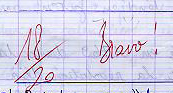 18/20 Bravo !